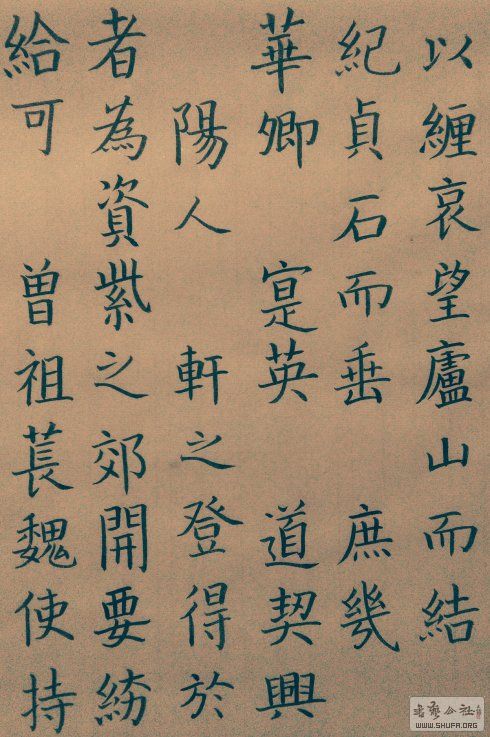 以纏哀望廬山而結
紀貞石而垂 庶幾
華卿 寔英 道契興
陽人 軒之登得於
者為資紫之郊開要
給可 曾祖萇魏使持
WWW.SHUFA.ORG